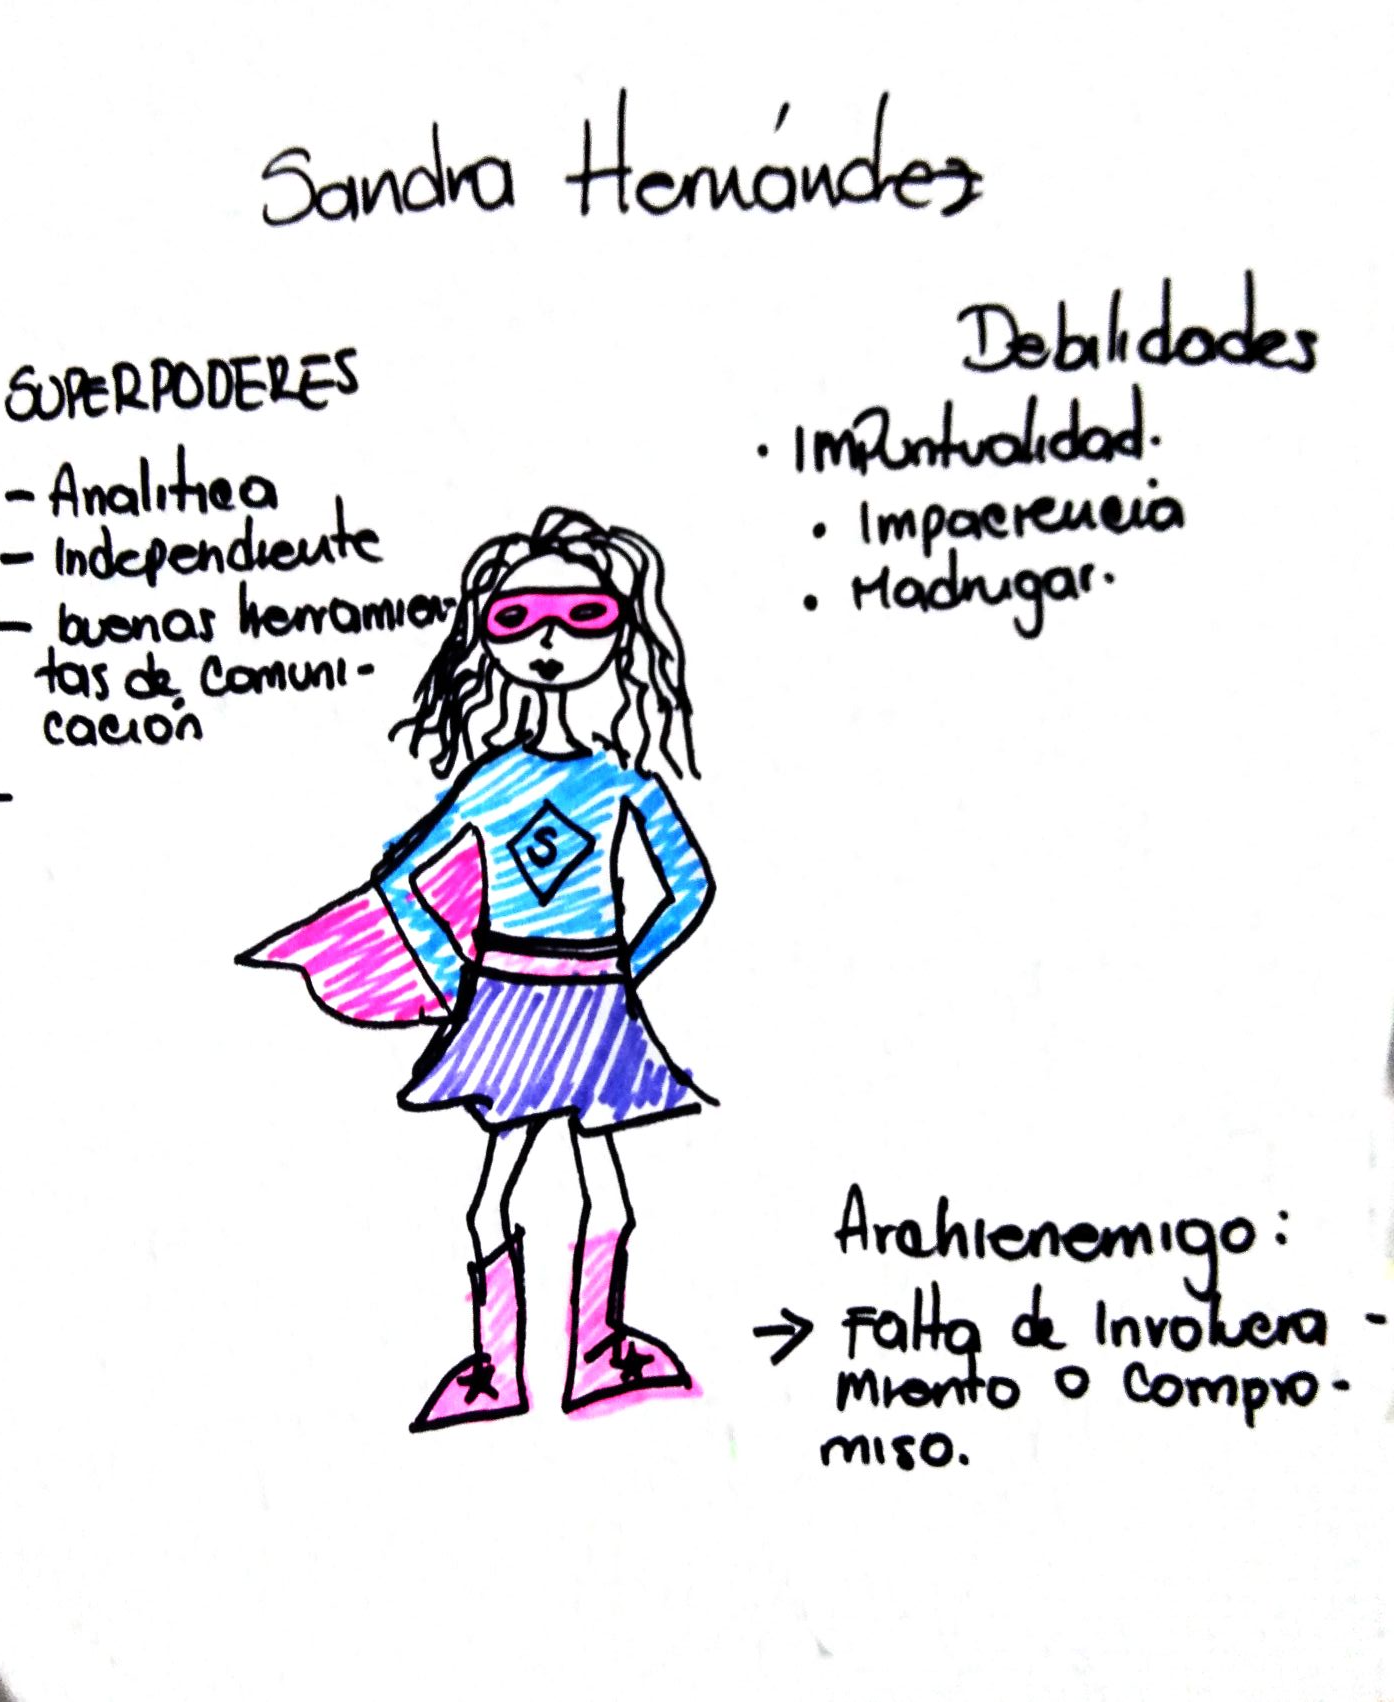 Sandra Hernández
SUPERPODERES
- Analitica
- Independiente
- buenas herramien-
tas de comuni-
cación
-
Debilidades
• Impuntualidad.
• Impaciencia
• Madrugar.
S
Archienemigo:
→ Falta de Involucra-
miento o compro-
miso.